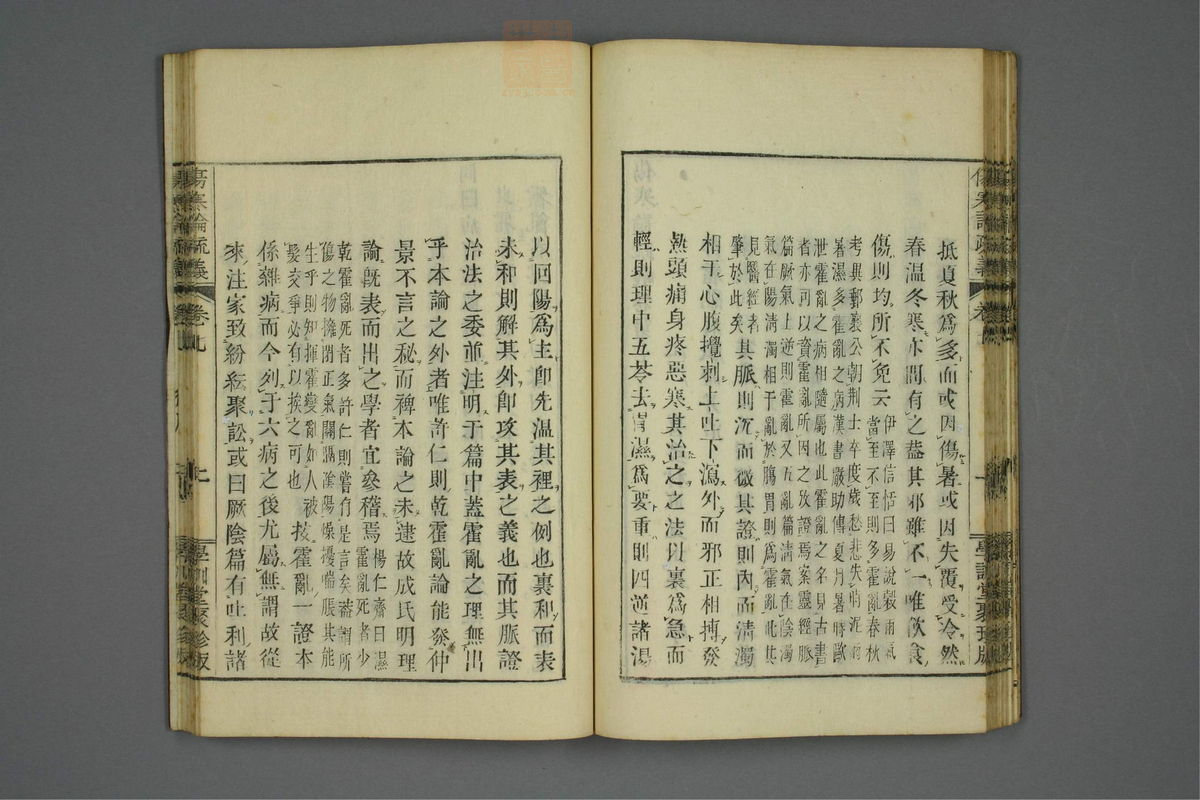 抵夏秋爲多而或因傷暑或因失覆受冷然
春温冬寒亦間有之葢其邪雖不一唯飲食
傷則均所不免云
伊澤信恬曰易說穀雨氣
當至不至則多霍亂春秋
考異郵襄公朝荆士卒度歲愁悲失時泥雨
暑濕多霍亂之病漢書嚴助傳夏月暑時歐
泄霍亂之病相隨屬也此霍亂之名見古書
者亦可以資霍亂所因之攷證焉案靈經脈
篇厥氣上逆則霍亂又五亂篇淸氣在陰濁
氣在陽淸濁相干亂於腸胃則爲霍亂此其
見醫經者
肇於此矣
其脈則沉而微其證則內而淸濁
相干心腹攪刺上吐下瀉外而邪正相搏發
熱頭痛身疼惡寒其治之之法以裏爲急而
輕則理中五苓去冒濕爲要重則四逆諸湯
學訓堂聚珍版
以回陽爲主卽先温其裡之例也裏和而表
未和則解其外卽攻其表之義也而其脈證
治法之委並注明于篇中蓋霍亂之理無出
乎本論之外者唯許仁則乾霍亂論能發仲
景不言之秘而裨本論之未逮故成氏明理
論旣表而出之學者宜參稽焉
楊仁齋曰濕
霍亂死者少
乾霍亂死者多許仁則嘗有是言矣蓋謂所
傷之物擁閉正氣關隔陰陽燥擾喘脹其能
生乎則知揮霍變亂如人被
髮交爭必有以挨之可也
按霍亂一證本
係雜病而今列于六病之後尤屬無謂故從
來注家致紛紜聚訟或曰厥陰篇有吐利諸
傷寒論疏義
卷七
學訓堂聚珍版